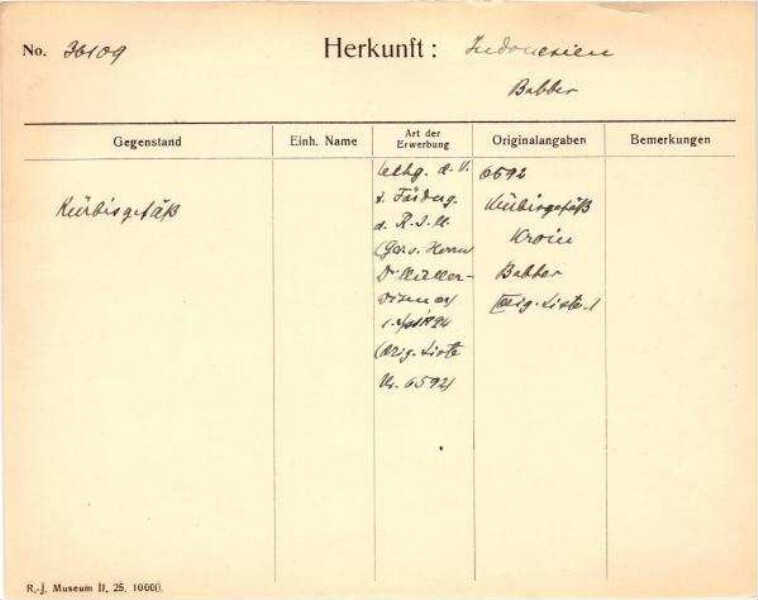 No. 36109
Herkunft: Indonesien
Babber
Gegenstand
Einh. Name
Art der
Erwerbung
Originalangaben
Bemerkungen
Kürbisgefäß
d. V.
z. Fördng.
d. R.J.M.
v. Herrn
Dr Müller-
Wismar
Orig. Liste
Nr. 6592)
6592
Kürbisgefäß
Kroin
Babber
Orig. Liste
R.-J. Museum II, 25. 10000.